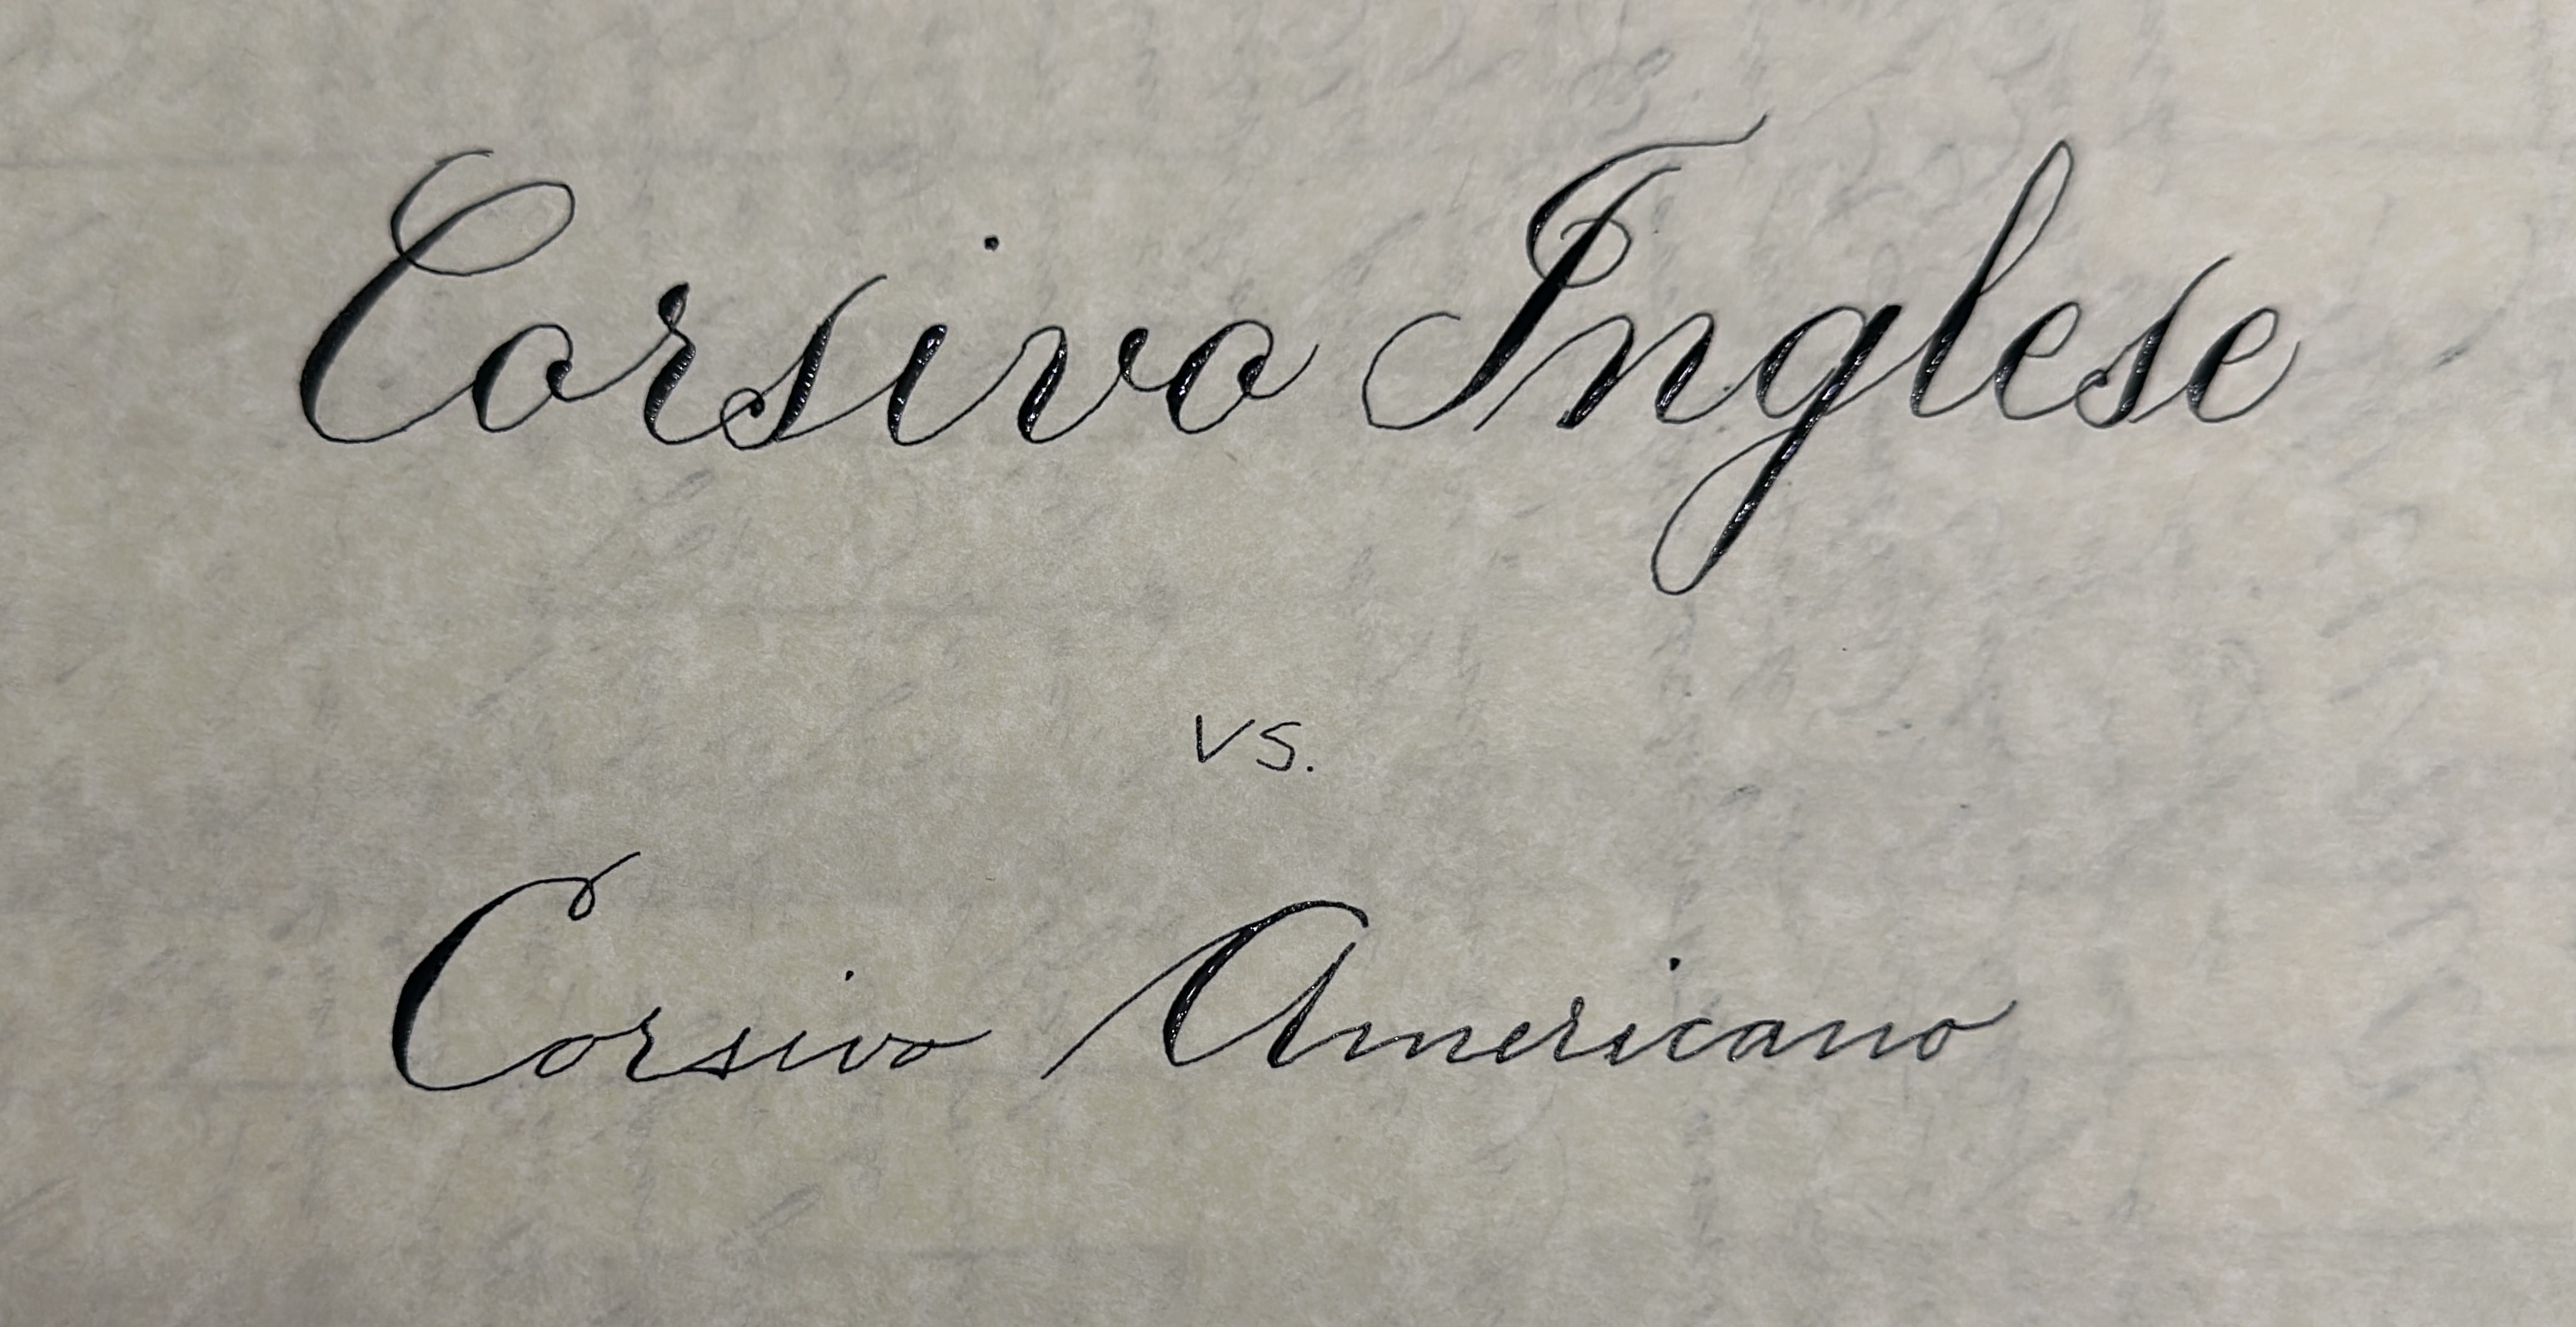 Corsivo Inglese
vs.
Corsivo Americano